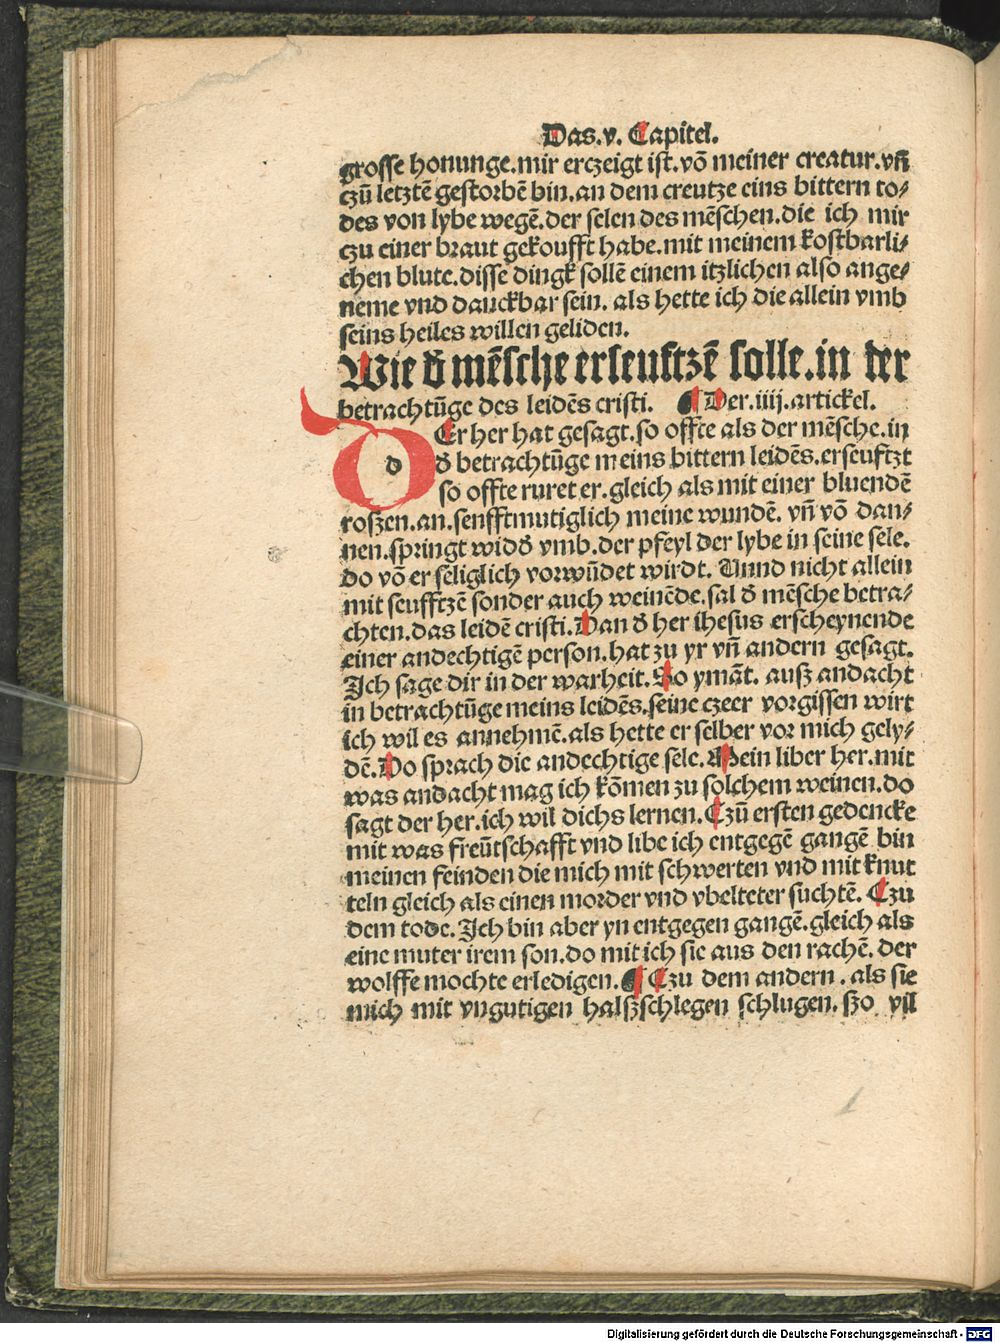 Das.v. Capitel.
grosse honunge.mir erczeigt ist.võ meiner creatur.vñ
czũ letztẽ gestorbẽ bin.an dem creutze eins bittern to⸗
des von lybe wegẽ.der selen des mẽschen.die ich mir
czu einer braut gekoufft habe.mit meinem kostbarli⸗
chen blute.disse dingk sollẽ einem itzlichen also ange⸗
neme vnd danckbar sein. als hette ich die allein vmb
seins heiles willen geliden.
Wie d̄ mẽsche erseuftzẽ solle.in der
betrachtũge des leidẽs cristi. ¶ Der.iiij.artickel.
d Er her hat gesagt.so offte als der mẽsche.in
d̄ betrachtũge meins bittern leidẽs.erseuftzt
so offte ruret er.gleich als mit einer bluendẽ
roszen.an.senfftmutiglich meine wundẽ. vñ võ dan⸗
nen.springt widd̄ vmb.der pfeyl der lybe in seine sele.
do võ er seliglich vorwũdet wirdt. Unnd nicht allein
mit seufftzẽ sonder auch weinẽde.sal d̄ mẽsche betra⸗
chten.das leidẽ cristi.Dan d̄ her ihesus erscheynende
einer andechtigẽ person.hat zu yr vñ andern gesagt.
Ich sage dir in der warheit.So ymãt. ausz andacht
in betrachtũge meins leidẽs.seine czeer vorgissen wirt
ich wil es annehmẽ.als hette er selber vor mich gely⸗
dẽ.Do sprach die andechtige sele.Mein liber her.mit
was andacht mag ich kõmen zu solchem weinen.do
sagt der her.ich wil dichs lernen.Czũ ersten gedencke
mit was freũtschafft vnd libe ich entgegẽ gangẽ bin
meinen feinden die mich mit schwerten vnd mit knut
teln gleich als einen morder vnd vbelteter suchtẽ. Czu
dem tode.Ich bin aber yn entgegen gangẽ.gleich als
eine muter irem son.do mit ich sie aus den rachẽ. der
wolffe mochte erledigen.¶ Czu dem andern . als sie
mich mit vngutigen halszschlegen schlugen. szo vil
Digitalisierung gefördert durch die Deutsche Forschungsgemeinschaft - DFG